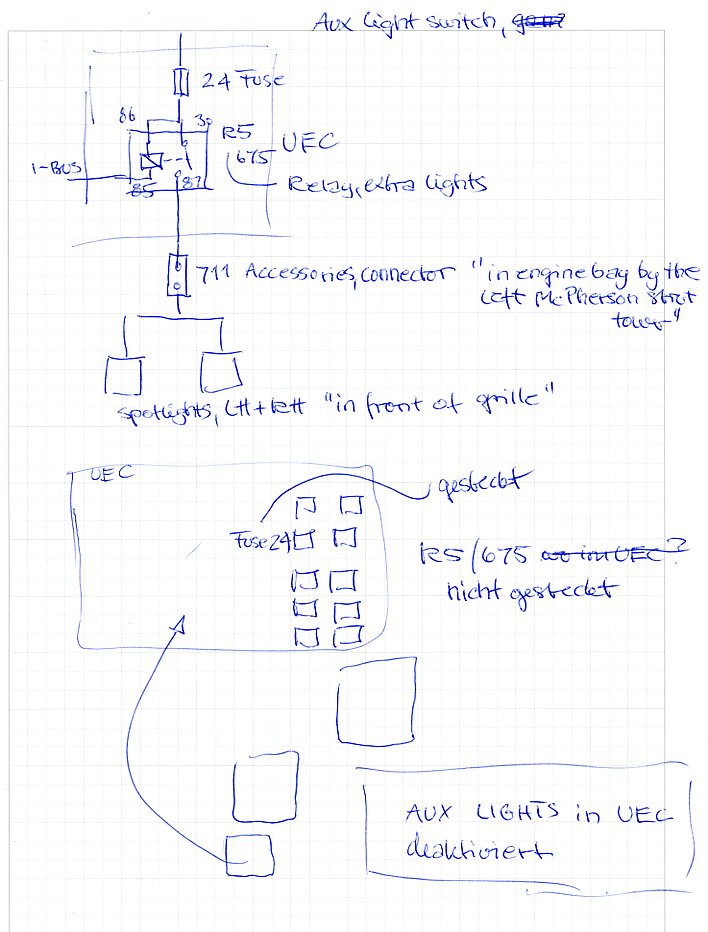 Aux light switch,
24 Fuse
86
30
R5
675
UEC
I-BUS
85
87
Relay, extra lights
711 Accessories, connector "in engine bay by the
left McPherson strut
tower"
spotlights, LH + RH "in front of grille"
UEC
gesteckt
Fuse 24
R5/675 wo im UEC?
nicht gesteckt
AUX LIGHTS in UEC
deaktiviert